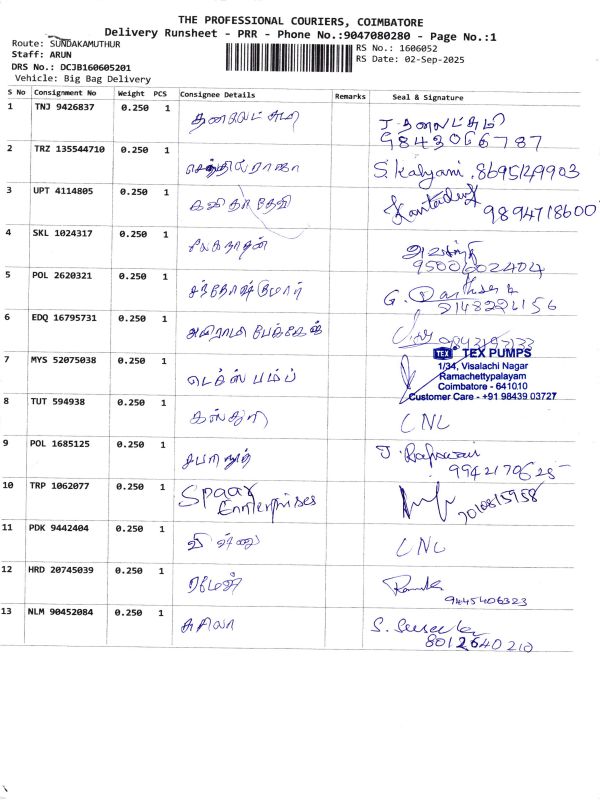 THE PROFESSIONAL COURIERS, COIMBATORE
Delivery Runsheet - PRR - Phone No.:9047080280 - Page No.:1
Route: SUNDAKAMUTHUR
Staff: ARUN
DRS No.: DCJB160605201
Vehicle: Big Bag Delivery
RS No.: 1606052
RS Date: 02-Sep-2025
S No Consignment No Weight PCS Consignee Details Remarks Seal & Signature
1 TNJ 9426837 0.250 1 தனலட்சுமி J. தனலட்சுமி
9843066787
2 TRZ 135544710 0.250 1 செந்தில்ராஜா S. Kalyani. 8695129903
3 UPT 4114805 0.250 1 கவிதா தேவி
9894718600
4 SKL 1024317 0.250 1 லோகநாதன்
9500602404
5 POL 2620321 0.250 1 சந்தோஷ்குமார் G.
2148221156
6 EDQ 16795731 0.250 1 அபிராமி
7 MYS 52075038 0.250 1 டெக்ஸ் பம்ப்
TEX TEX PUMPS
1/34, Visalachi Nagar
Ramachettypalayam
Coimbatore - 641010
Customer Care - +91 98439 03727
8 TUT 594938 0.250 1 கஸ்தூரி CNL
9 POL 1685125 0.250 1 சபாநாத் J.
9942170625
10 TRP 1062077 0.250 1 Spaar
Enterprises
7010815958
11 PDK 9442404 0.250 1 விஷ்ணு CNL
12 HRD 20745039 0.250 1 ரமேஷ்
9445406323
13 NLM 90452084 0.250 1 சுசிலா S.
8012640210